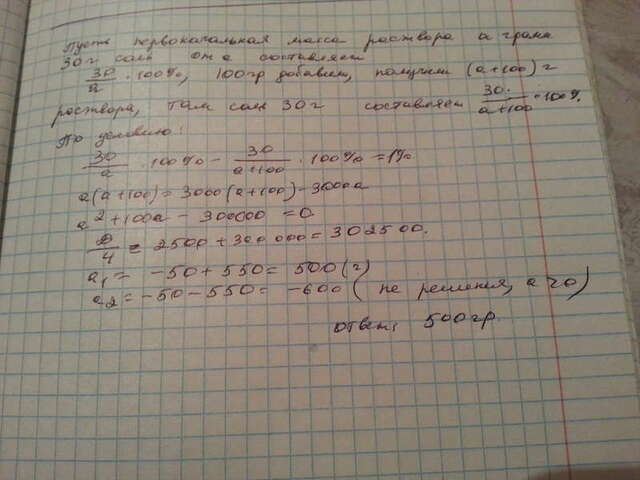 Пусть первоначальная масса раствора a грамм
30 г соль она составляет
30/a · 100%, 100гр добавим, получим (a+100) г
роствора, там соль 30 г составляет 30/a+100 · 100%.
По условию:
30/a · 100% – 30/a+100 · 100% = 1%
a(a+100) = 3000(a+100) – 3000a
a² + 100a – 300000 = 0
D/4 = 2500 + 300 000 = 302500.
a₁ = –50 + 550 = 500 (г)
a₂ = –50 – 550 = –600 ( не решения, a>0 )
ответ: 500гр.